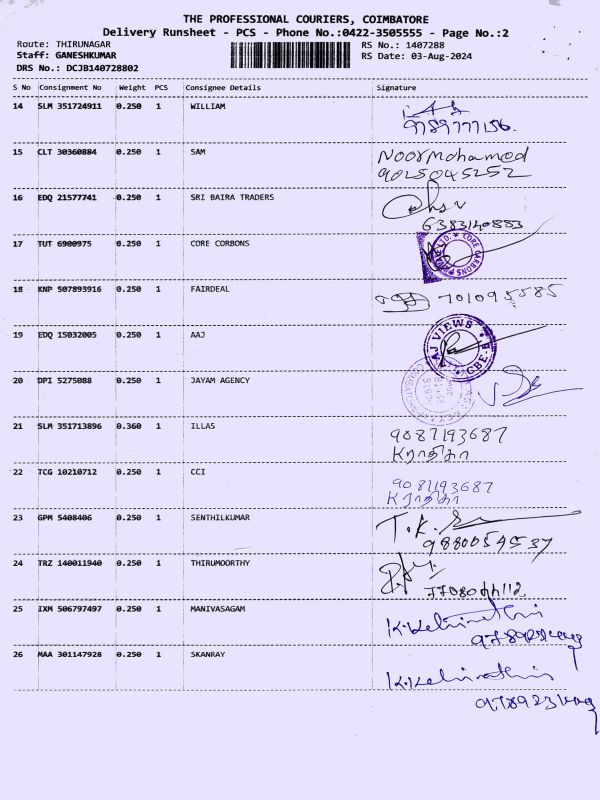 THE PROFESSIONAL COURIERS, COIMBATORE
Delivery Runsheet - PCS - Phone No.:0422-3505555 - Page No.:2
Route: THIRUNAGAR
RS No.: 1407288
Staff: GANESHKUMAR
RS Date: 03-Aug-2024
DRS No.: DCJB140728802
S No Consignment No Weight PCS Consignee Details Signature
14 SLM 351724911 0.250 1 WILLIAM
15 CLT 30360884 0.250 1 SAM Noor Mohamed
9025045252
16 EDQ 21577741 0.250 1 SRI BAIRA TRADERS
6383140883
17 TUT 6900975 0.250 1 CORE CORBONS
CORE CARBONS
18 KNP 507893916 0.250 1 FAIRDEAL 7010955585
19 EDQ 15032005 0.250 1 AAJ
AJ VIEWS CBE
20 DPI 5275088 0.250 1 JAYAM AGENCY
21 SLM 351713896 0.360 1 ILLAS 9087193687
22 TCG 10210712 0.250 1 CCI 9087193687
23 GPM 5408406 0.250 1 SENTHILKUMAR T.K.
24 TRZ 140011940 0.250 1 THIRUMOORTHY
25 IXM 506797497 0.250 1 MANIVASAGAM
26 MAA 301147928 0.250 1 SKANRAY